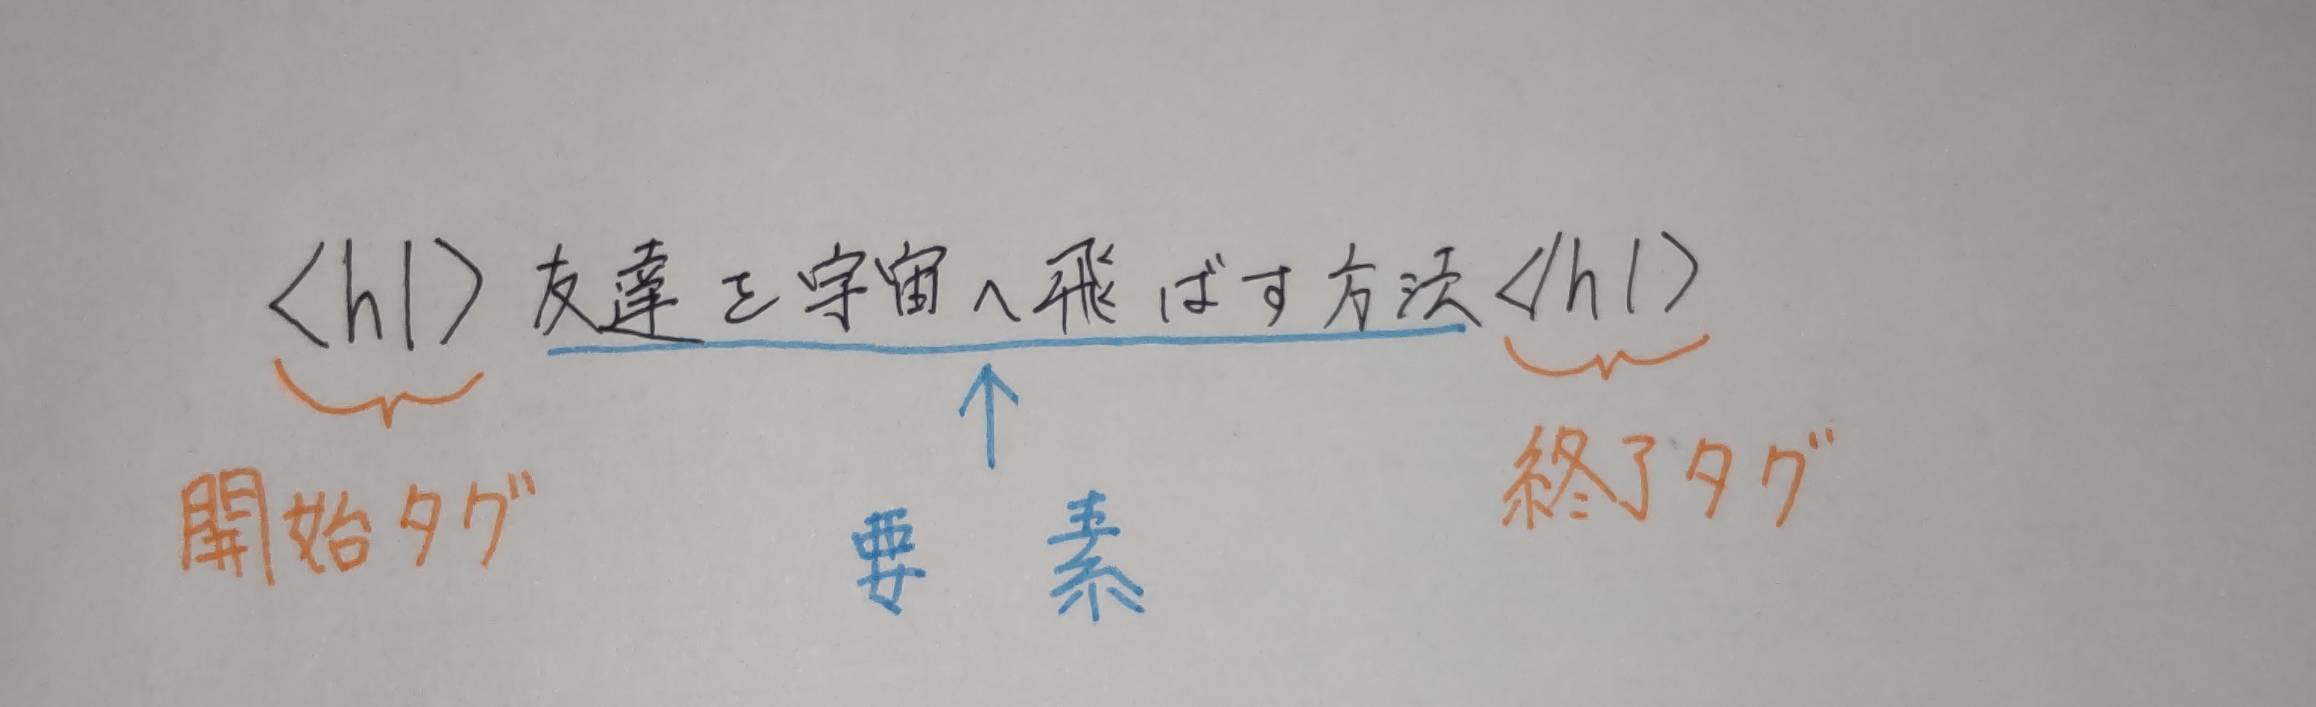 <h1>友達を宇宙へ飛ばす方法</h1>
開始タグ
要素
終了タグ